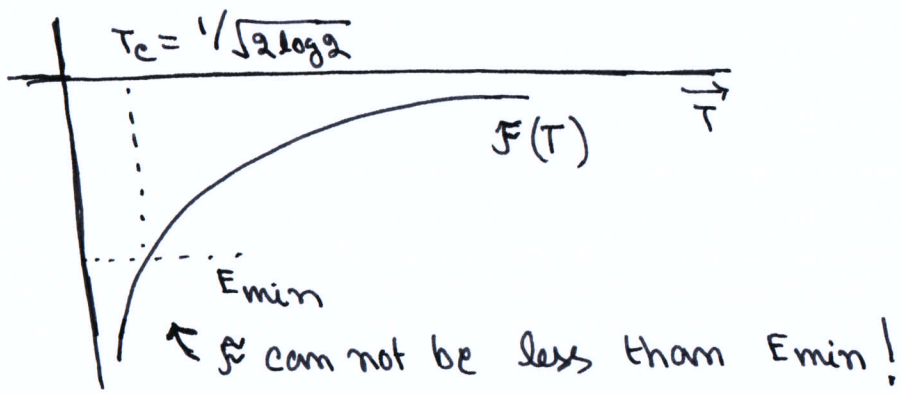 Tc = 1/√2log2
T
F(T)
Emin
F can not be less than Emin!